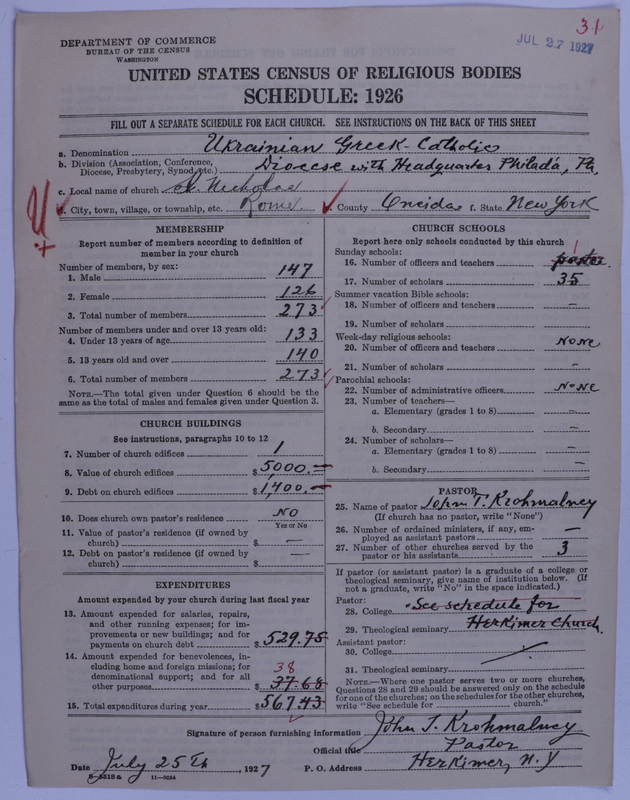 31
JUL 27 1927
DEPARTMENT OF COMMERCE
BUREAU OF THE CENSUS
WASHINGTON
UNITED STATES CENSUS OF RELIGIOUS BODIES
SCHEDULE: 1926
FILL OUT A SEPARATE SCHEDULE FOR EACH CHURCH. SEE INSTRUCTIONS ON THE BACK OF THIS SHEET
a. Denomination Ukrainian Greek-Catholic
b. Division (Association, Conference, Diocese, Presbytery, Synod, etc.) Diocese with Headquarter Philada, Pa.
c. Local name of church St. Nicholas
d. City, town, village, or township, etc. Rome e. County Oneida f. State New York
MEMBERSHIP
Report number of members according to definition of member in your church
Number of members, by sex:
1. Male 147
2. Female 126
3. Total number of members 273
Number of members under and over 13 years old:
4. Under 13 years of age 133
5. 13 years old and over 140
6. Total number of members 273
NOTE.—The total given under Question 6 should be the same as the total of males and females given under Question 3.
CHURCH BUILDINGS
See instructions, paragraphs 10 to 12
7. Number of church edifices 1
8. Value of church edifices $5000.—
9. Debt on church edifices $1,400.—
10. Does church own pastor's residence NO
Yes or No
11. Value of pastor's residence (if owned by church) $ —
12. Debt on pastor's residence (if owned by church) $ —
EXPENDITURES
Amount expended by your church during last fiscal year
13. Amount expended for salaries, repairs, and other running expenses; for improvements or new buildings; and for payments on church debt $529.75
14. Amount expended for benevolences, including home and foreign missions; for denominational support; and for all other purposes 38 $37.68
15. Total expenditures during year $567.43
CHURCH SCHOOLS
Report here only schools conducted by this church
Sunday schools:
16. Number of officers and teachers 1 pastor
17. Number of scholars 35
Summer vacation Bible schools:
18. Number of officers and teachers —
19. Number of scholars
Week-day religious schools:
20. Number of officers and teachers NONE
21. Number of scholars —
Parochial schools:
22. Number of administrative officers NONE
23. Number of teachers—
a. Elementary (grades 1 to 8) —
b. Secondary —
24. Number of scholars—
a. Elementary (grades 1 to 8) —
b. Secondary —
PASTOR
25. Name of pastor John T. Krohmalney
(If church has no pastor, write "None")
26. Number of ordained ministers, if any, employed as assistant pastors —
27. Number of other churches served by the pastor or his assistants 3
If pastor (or assistant pastor) is a graduate of a college or theological seminary, give name of institution below. (If not a graduate, write "No" in the space indicated.)
Pastor:
28. College See schedule for
29. Theological seminary Herkimer Church.
Assistant pastor:
30. College
31. Theological seminary
NOTE.—Where one pastor serves two or more churches, Questions 28 and 29 should be answered only on the schedule for one of the churches; on the schedules for the other churches, write "See schedule for church."
Signature of person furnishing information John T. Krohmalney
Official title Pastor
Date July 25th, 1927 P. O. Address Herkimer, N. Y
8-5518a 11—9034